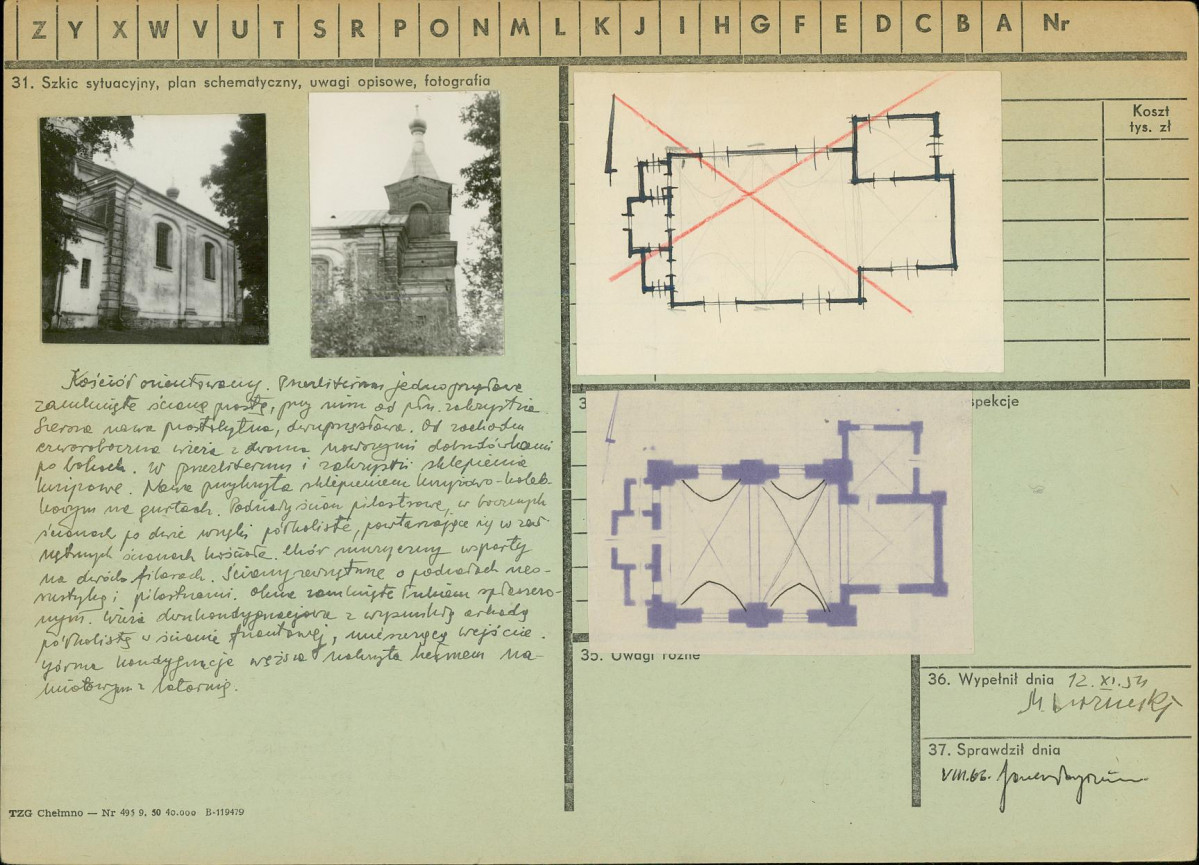 Z Y X W V U T S R P O N M L K J I H G F E D C B A Nr
31. Szkic sytuacyjny, plan schematyczny, uwagi opisowe, fotografia
Koszt
tys. zł
Kościół orientowany. Prezbiterium jednoprzęsłowe
zamknięte ścianą prostą, przy nim od płn. zakrystia.
Szersza nawa prostokątna, dwuprzęsłowa. Od zachodu
czworoboczna wieża z dwoma nowszymi dobudówkami
po bokach. W prezbiterium i zakrystii sklepienia
krzyżowe. Nawa przykryta sklepieniem krzyżowo-koleb-
kowym na gurtach. Podziały ścian pilastrowe, w bocznych
ścianach po dwie wnęki półkoliste, powtarzające się w zew-
nętrznych ścianach kościoła. Chór muzyczny wsparty
na dwóch filarach. Ściany zewnętrzne o podziałach
i pilastrami. Okna zamknięte łukiem spłaszczo-
nym. Wieża dwukondygnacjowa z wypukłą arkadą
półkolistą w ścianie frontowej, mieszczącą wejście.
Górna kondygnacja węższa nakryta hełmem na-
miotowym z latarnią.
3
spekcje
35. Uwagi różne
36. Wypełnił dnia 12.XI.54
37. Sprawdził dnia
VIII.66.
TZG Chełmno — Nr 495 9. 50 40.000 B-119479